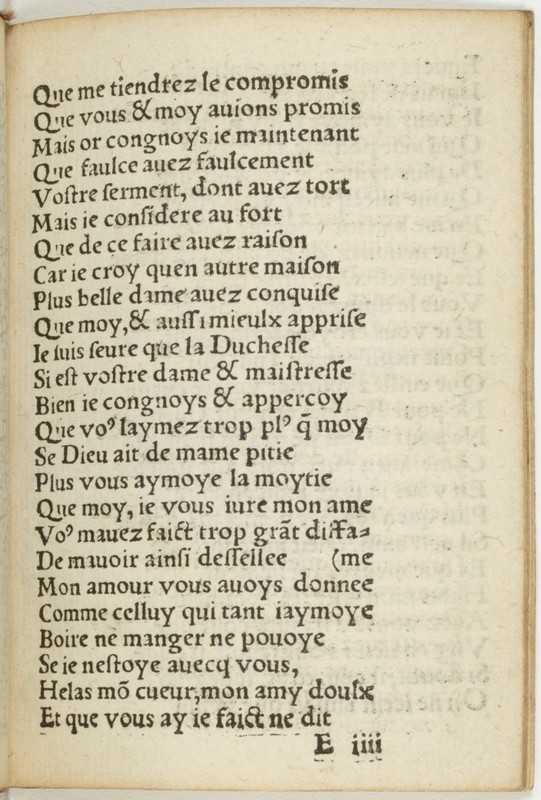 Que me tiendrez le compromis
Que vous & moy auions promis
Mais or congnoys ie maintenant
Que faulce auez faulcement
Voſtre ſerment, dont auez tort
Mais ie conſidere au fort
Que de ce faire auez raiſon
Car ie croy quen autre maiſon
Plus belle dame auez conquiſe
Que moy,& auſſi mieulx appriſe
Ie ſuis ſeure que la Ducheſſe
Si eſt voſtre dame & maiſtreſſe
Bien ie congnoys & appercoy
Que voꝰ laymez trop plꝰ q̃ moy
Se Dieu ait de mame pitie
Plus vous aymoye la moytie
Que moy, ie vous iure mon ame
Voꝰ mauez faict trop grãt diffa⸗
De mauoir ainſi deſſellee (me
Mon amour vous auoys donnee
Comme celluy qui tant iaymoye
Boire ne manger ne pouoye
Se ie neſtoye auecq vous,
Helas mõ cueur,mon amy doulx
Et que vous ay ie faict ne dit
E iiii